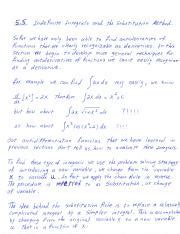 5.5 Indefinite Integrals and the Substitution Method
So far we have only been able to find antiderivatives of
functions that are clearly recognizable as derivatives. In this
section we begin to develop more general techniques for
finding antiderivatives of functions we can't easily recognize
as a derivative.
For example we can find ∫2x dx very easily, we know
d/dx[x²] = 2x therefore ∫2x dx = x² + C
but how about
or how about
Our antidifferentiation formulas that we have learned in
previous sections do not allow us to evaluate these integrals
To find these type of integrals we use the problem solving strategy
of introducing a new variable, we change from the variable
x to variable u. In fact we apply the Chain Rule in reverse
The procedure is referred to as substitution, or change
of variable
The idea behind the substitution Rule is to replace a relatively
complicated integral by a simpler integral. This is accomplished
by changing from the original variable x to a new variable
u that is a function of x.